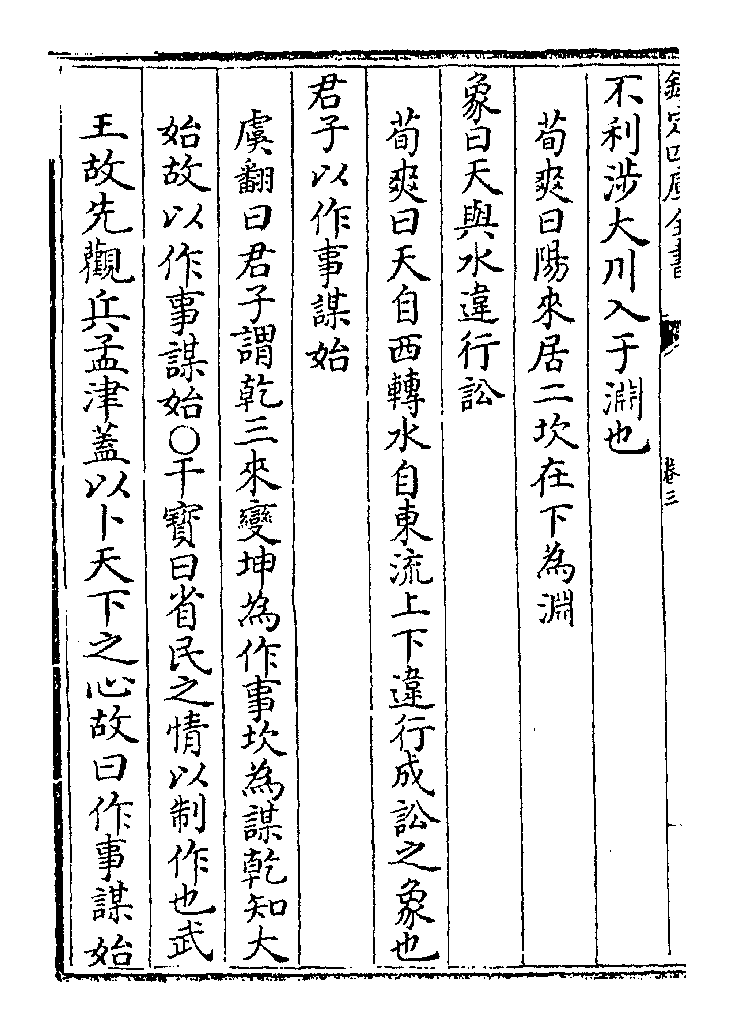 欽定四庫全書
卷三
不利涉大川入于淵也
荀爽曰陽來居二坎在下為淵
象曰天與水違行訟
荀爽曰天自西轉水自東流上下違行成訟之象也
君子以作事謀始
虞翻曰君子謂乾三來變坤為作事坎為謀乾知大
始故以作事謀始〇干寶曰省民之情以制作也武
王故先觀兵孟津蓋以卜天下之心故曰作事謀始